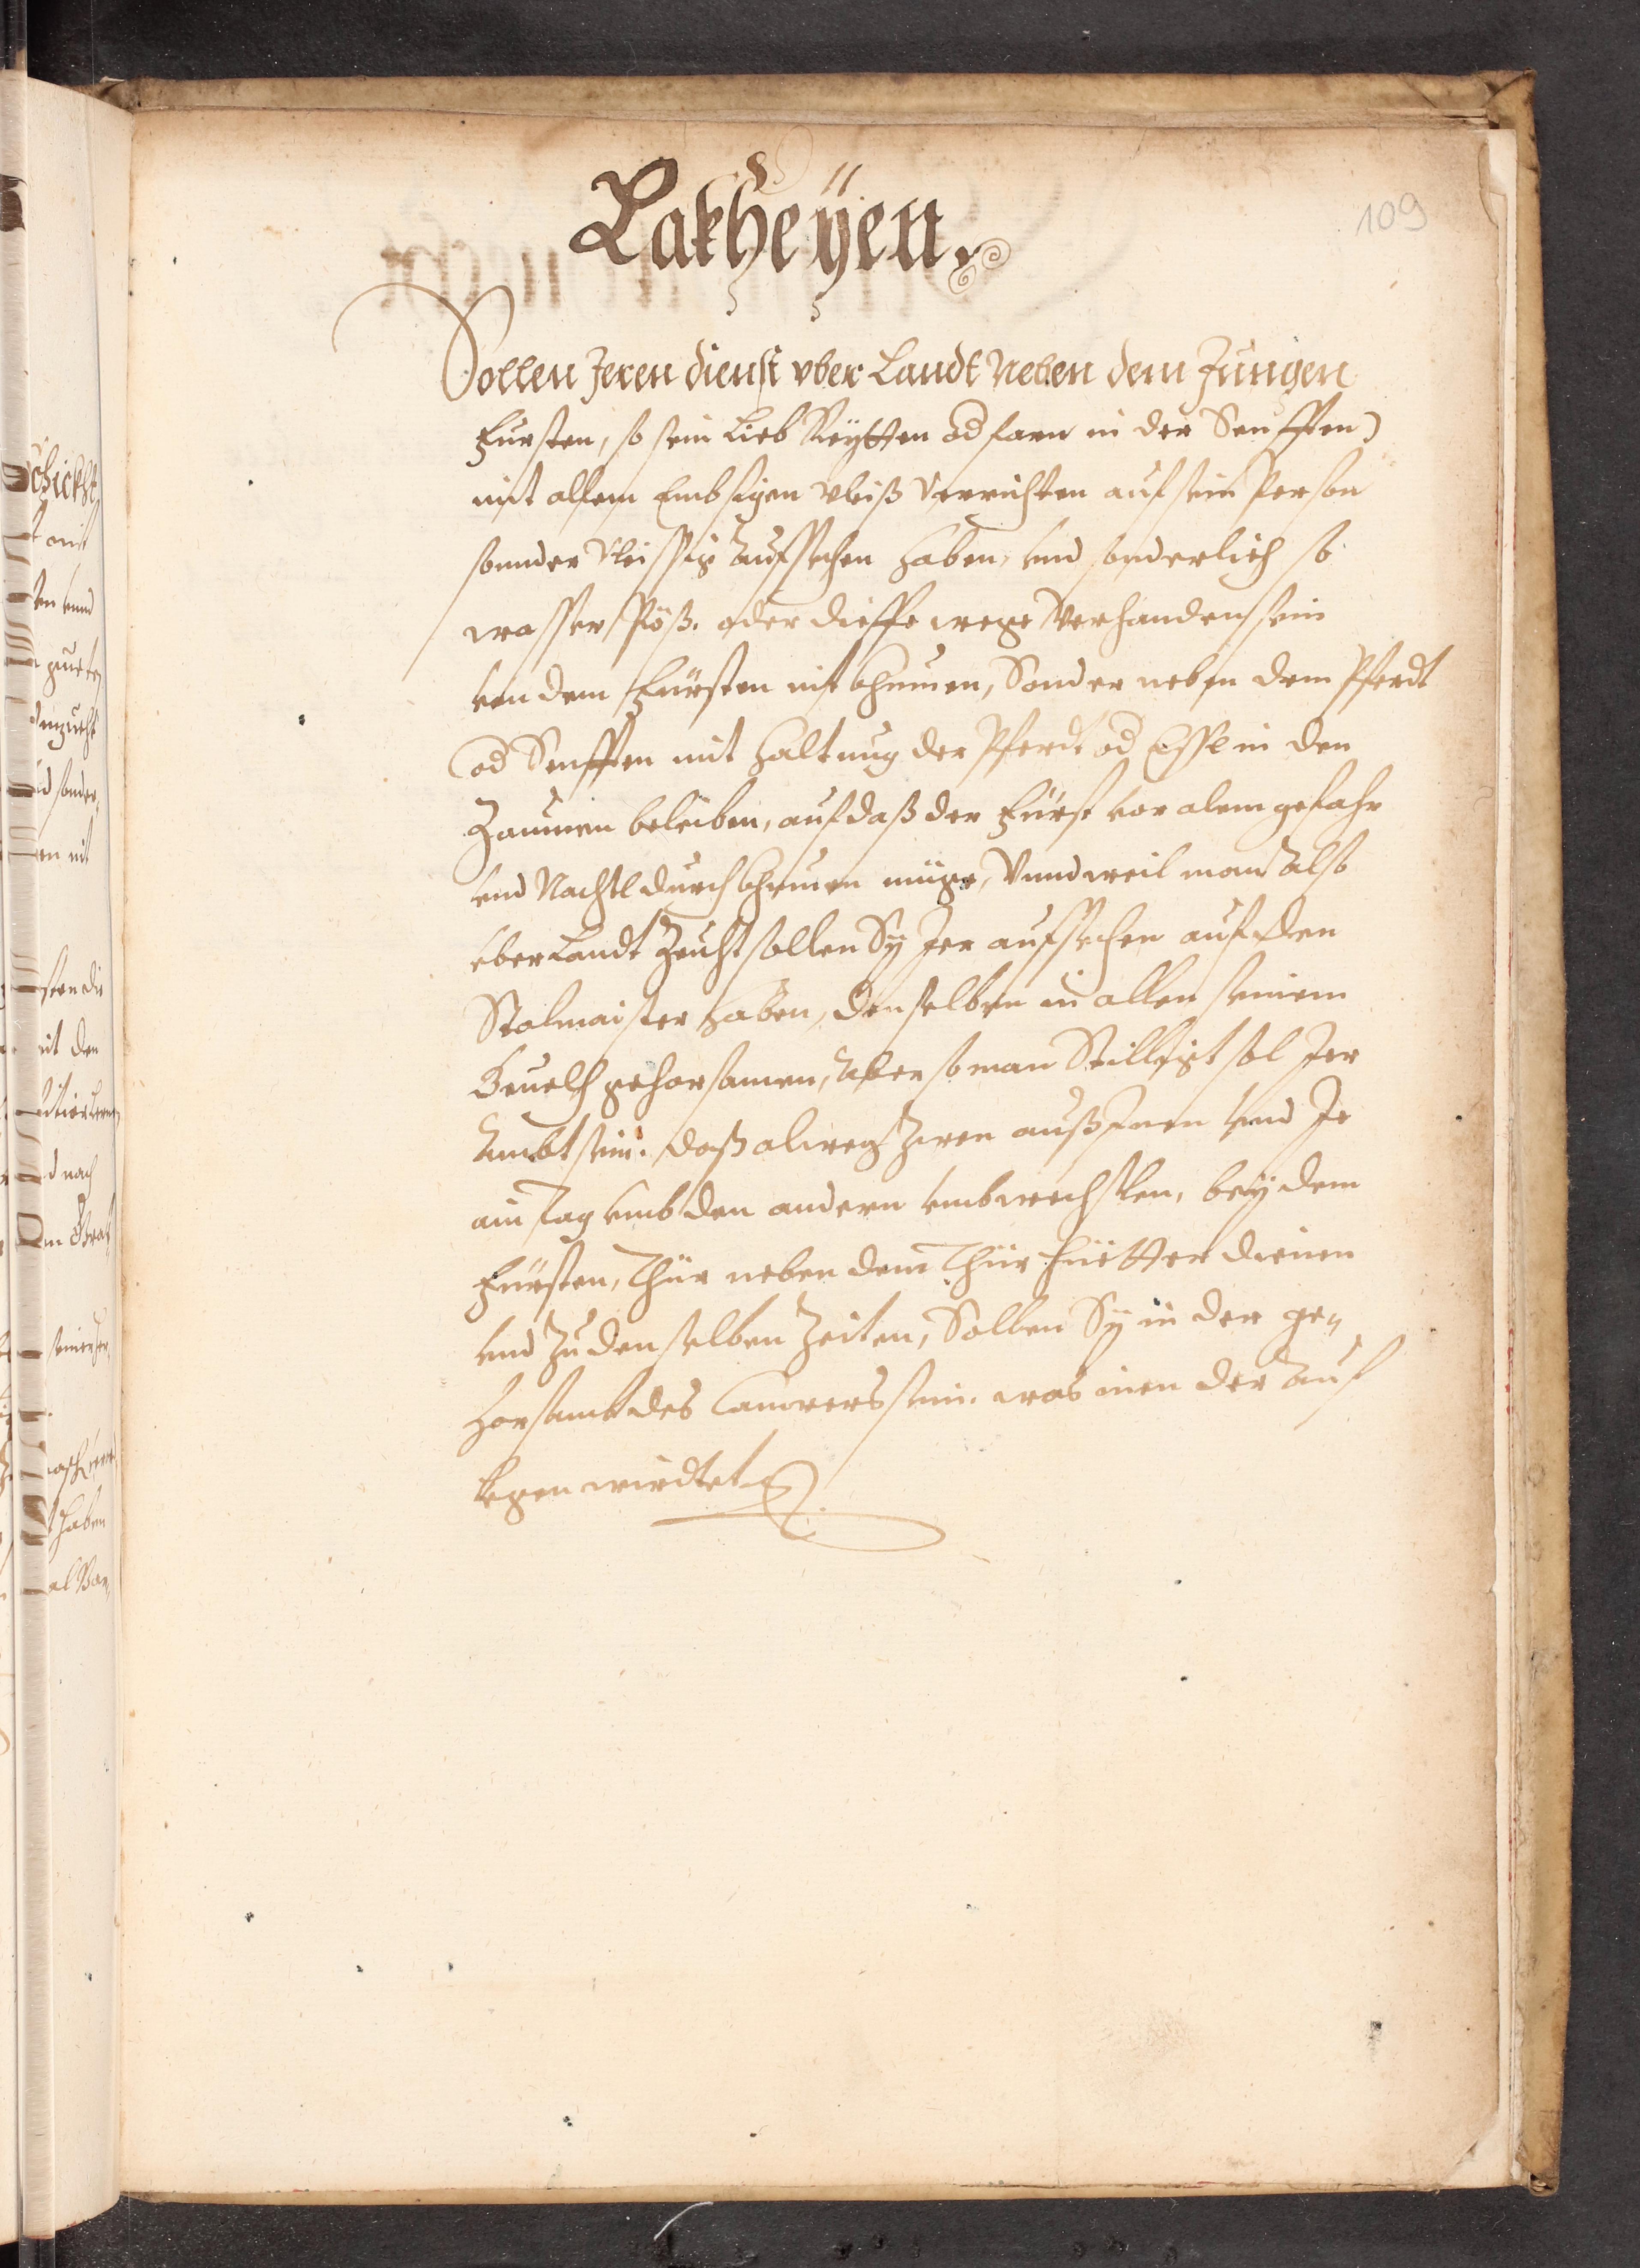 109
Lakheÿen
Sollen Jeren dienst vber Landt Neben dem Jungen
Fürsten, so sein Lieb Reÿtten od farn in der Senfften)
mit allem Embsigen Vleiß Verrichten auf sein Person
sonnder Vleissig Aufsehen haben, vnd sonderlich so
wasser Flöß. oder dieffe wege Verhanden sein
von dem Fürsten nit khumen, Sonder neben dem Pferdt
od Senfften mit haltung der Pferdt od Essl in den
Zaumen beleiben, auf daß der Fürst vor alem gefahr
vnd Nachtl durchkhumen müge, Vnnd weil man also
vber Landt Zeucht sollen Sÿ Jer aufsehen auf den
Stalmaister haben, denselben in allen seinem
Beuelch gehorsamen, Aber so man Stilligt sol Jer
Ambt sein. daß alweg Zwen auß Jnen vnd Je
ain tag vmb den andern vmbwechslen, beÿ dem
Fürsten, Thür neben dem Thürhüetter dienen
vnd Zu denselben Zeiten, Sollen Sÿ in der ge-
horsamb des Camrers sein. was inen der Auf
legen wirdtet